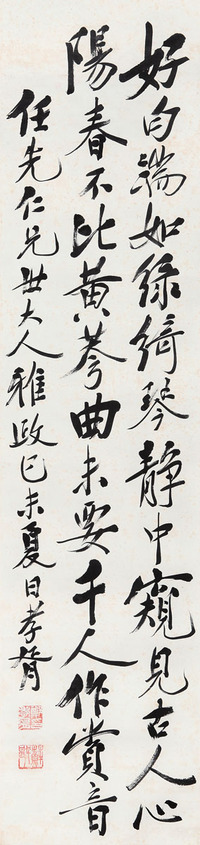 好句端如緑綺琴靜中窺見古人心
陽春不比黃荂曲未要千人作賞音
任先仁兄世大人雅政己未夏日孝胥